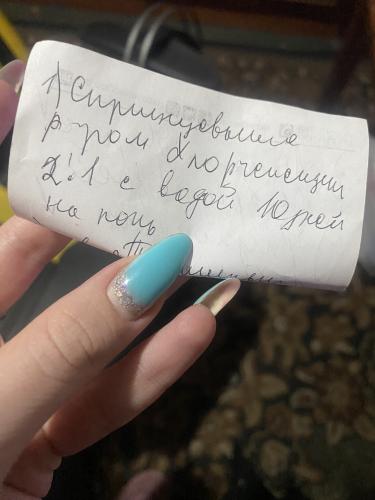 1) Спринцевание
р-ром Хлоргексидин
2:1 с водой 10 дней
на ночь